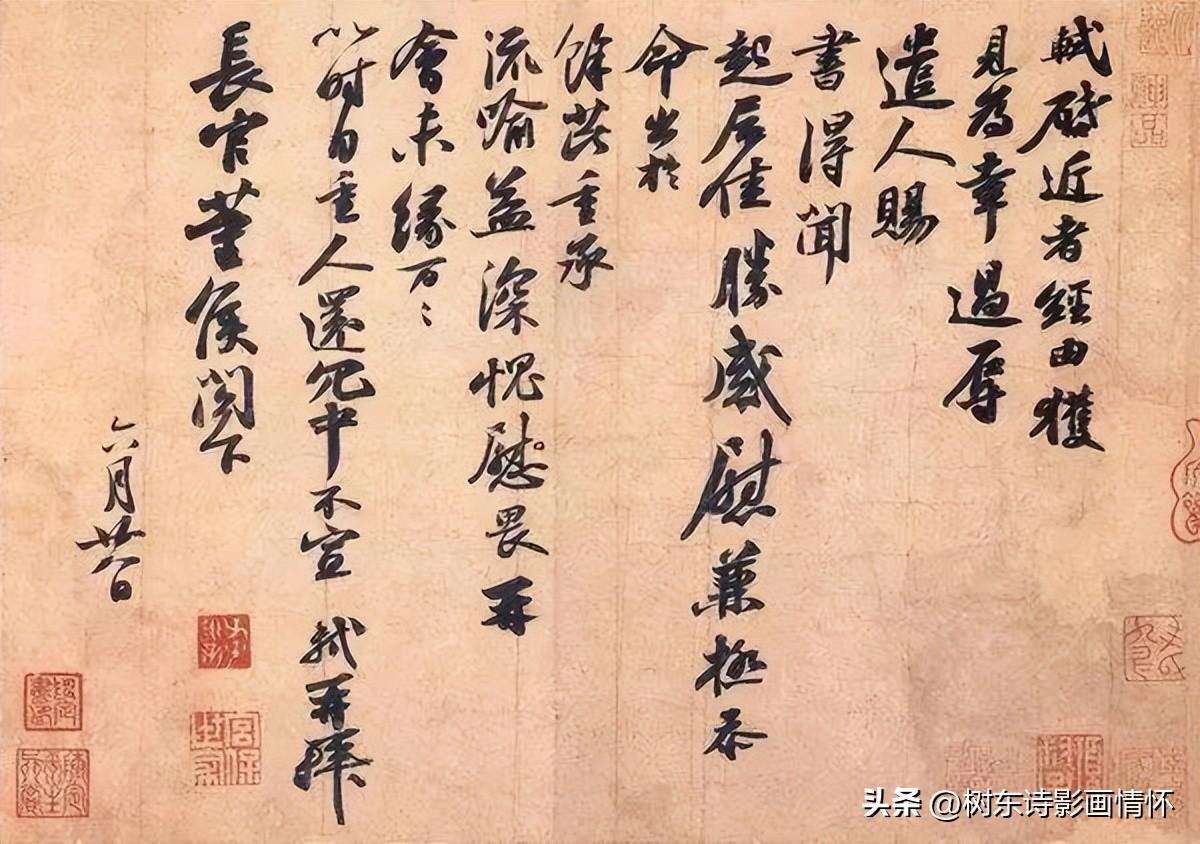 軾啟近者經由獲
見為幸過辱
遣人賜
書得聞
起居佳勝感慰兼極忝
命出於
餘芘重承
流喻益深愧慰畏再
會未緣万〻
以時自重人還冗中不宣 軾再拜
長官董侯閣下
六月廿八日
头条 @树东诗影画情怀